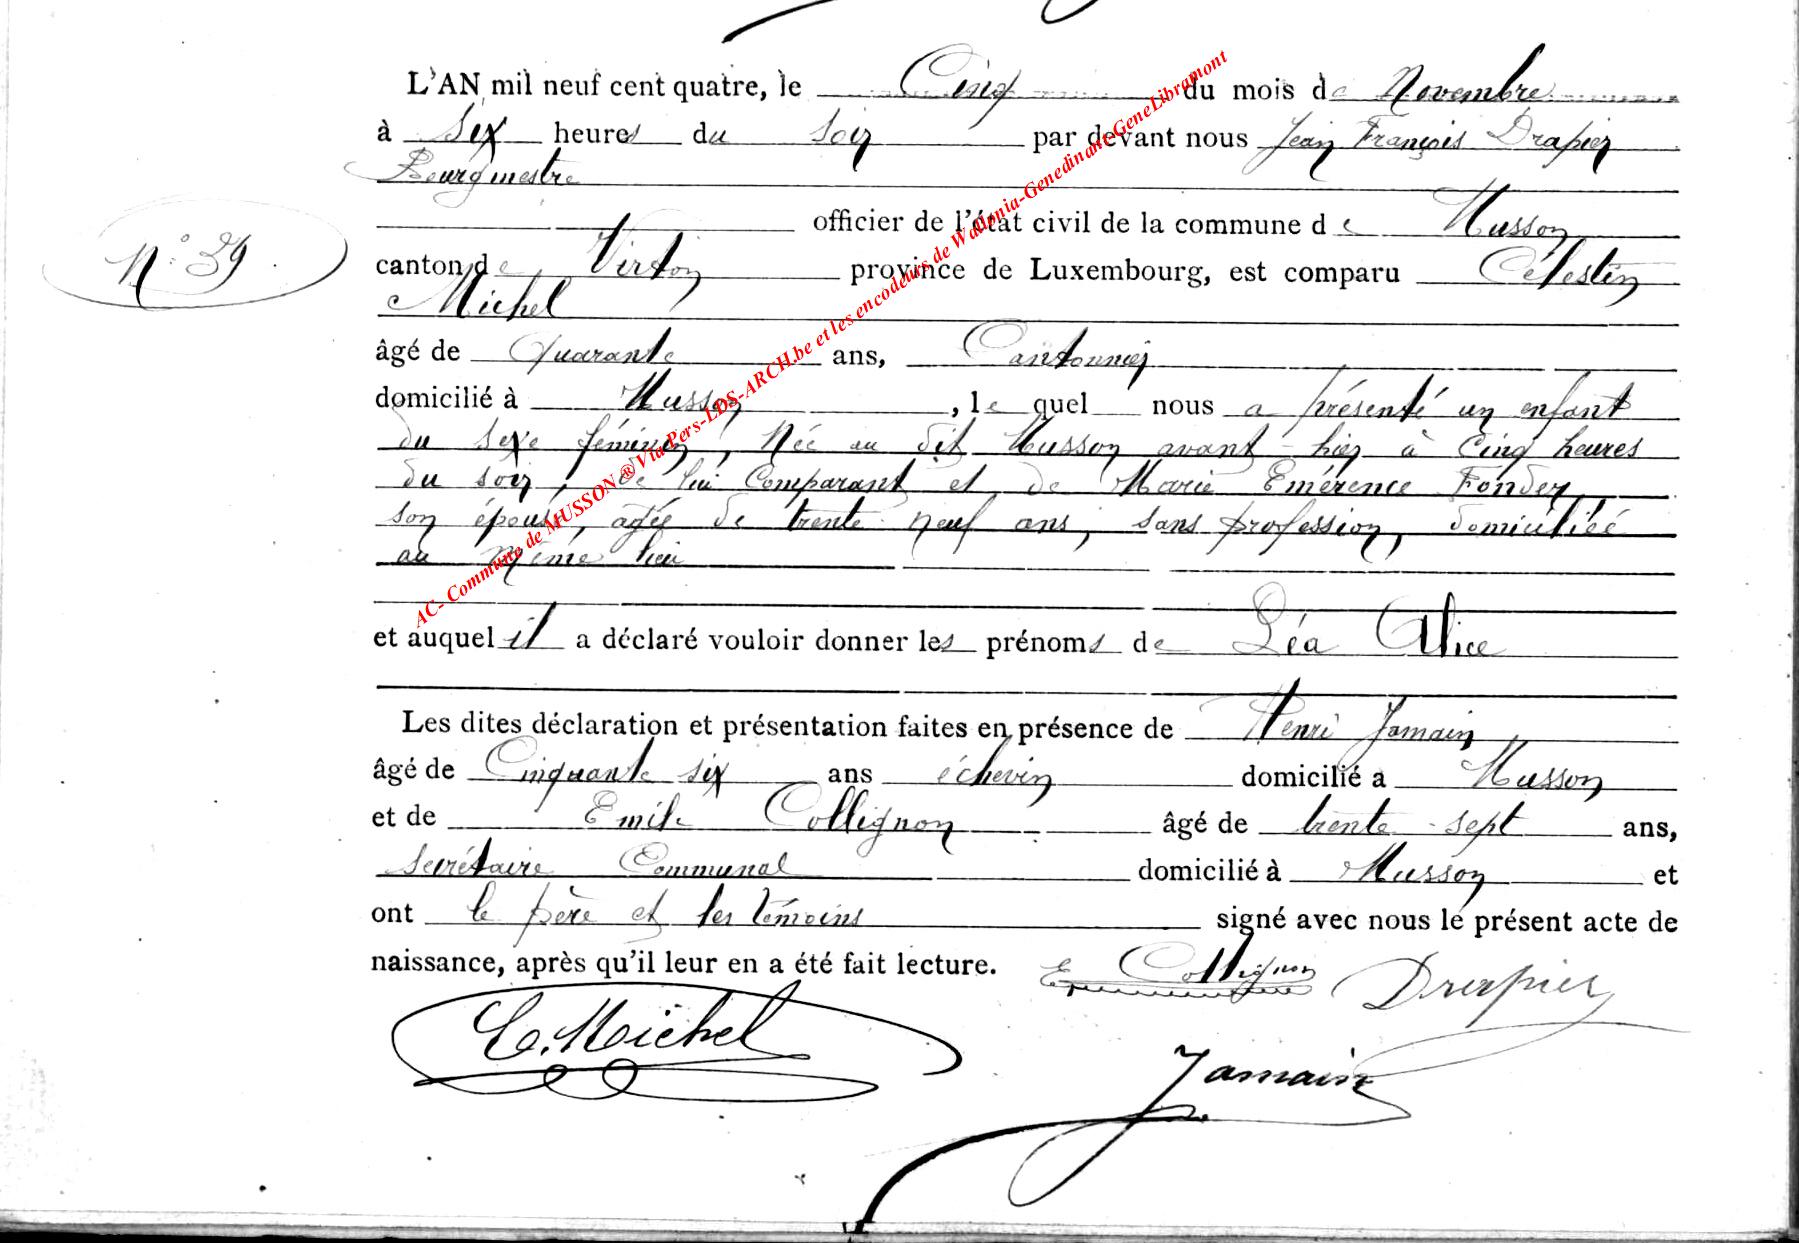 L'AN mil neuf cent quatre, le Cinq du mois de Novembre
à Six heures du soir par devant nous Jean François Drapier
Bourgmestre
officier de l'état civil de la commune de Musson
N° 39
canton de Virton province de Luxembourg, est comparu Célestin
Michel
âgé de Quarante ans, Cantonnier
domicilié à Musson, le quel nous a présenté un enfant
du sexe féminin, Née au dit Musson avant-hier à Cinq heures
du soir, de lui Comparant et de Marie Emérence Fonder
son épouse, agée de trente neuf ans, sans profession, domiciliée
au même lieu
et auquel il a déclaré vouloir donner les prénoms de Léa Alice
Les dites déclaration et présentation faites en présence de Henri Jamain,
âgé de Cinquante six ans échevin domicilié a Musson
et de Emile Collignon âgé de trente-sept ans,
Secrétaire Communal domicilié à Musson et
ont le père et les témoins signé avec nous le présent acte de
naissance, après qu'il leur en a été fait lecture.
E Collignon Drapier
C. Michel
Jamain
AC- Commune de MUSSON ® Via Pers-LDS-ARCH.be et les encodeurs de Wallonia-Genedinant-GeneLibramont